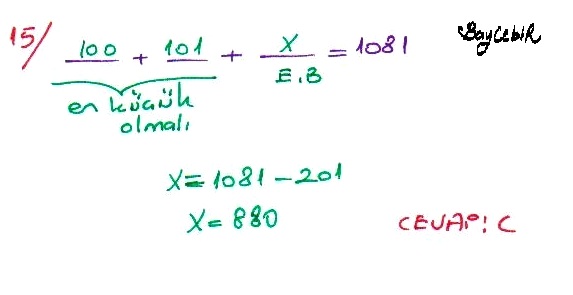 15/ 100 + 101 + X = 1081 BaycebiR
E.B
en küçük
olmalı
X = 1081 - 201
X = 880
CEVAP: C